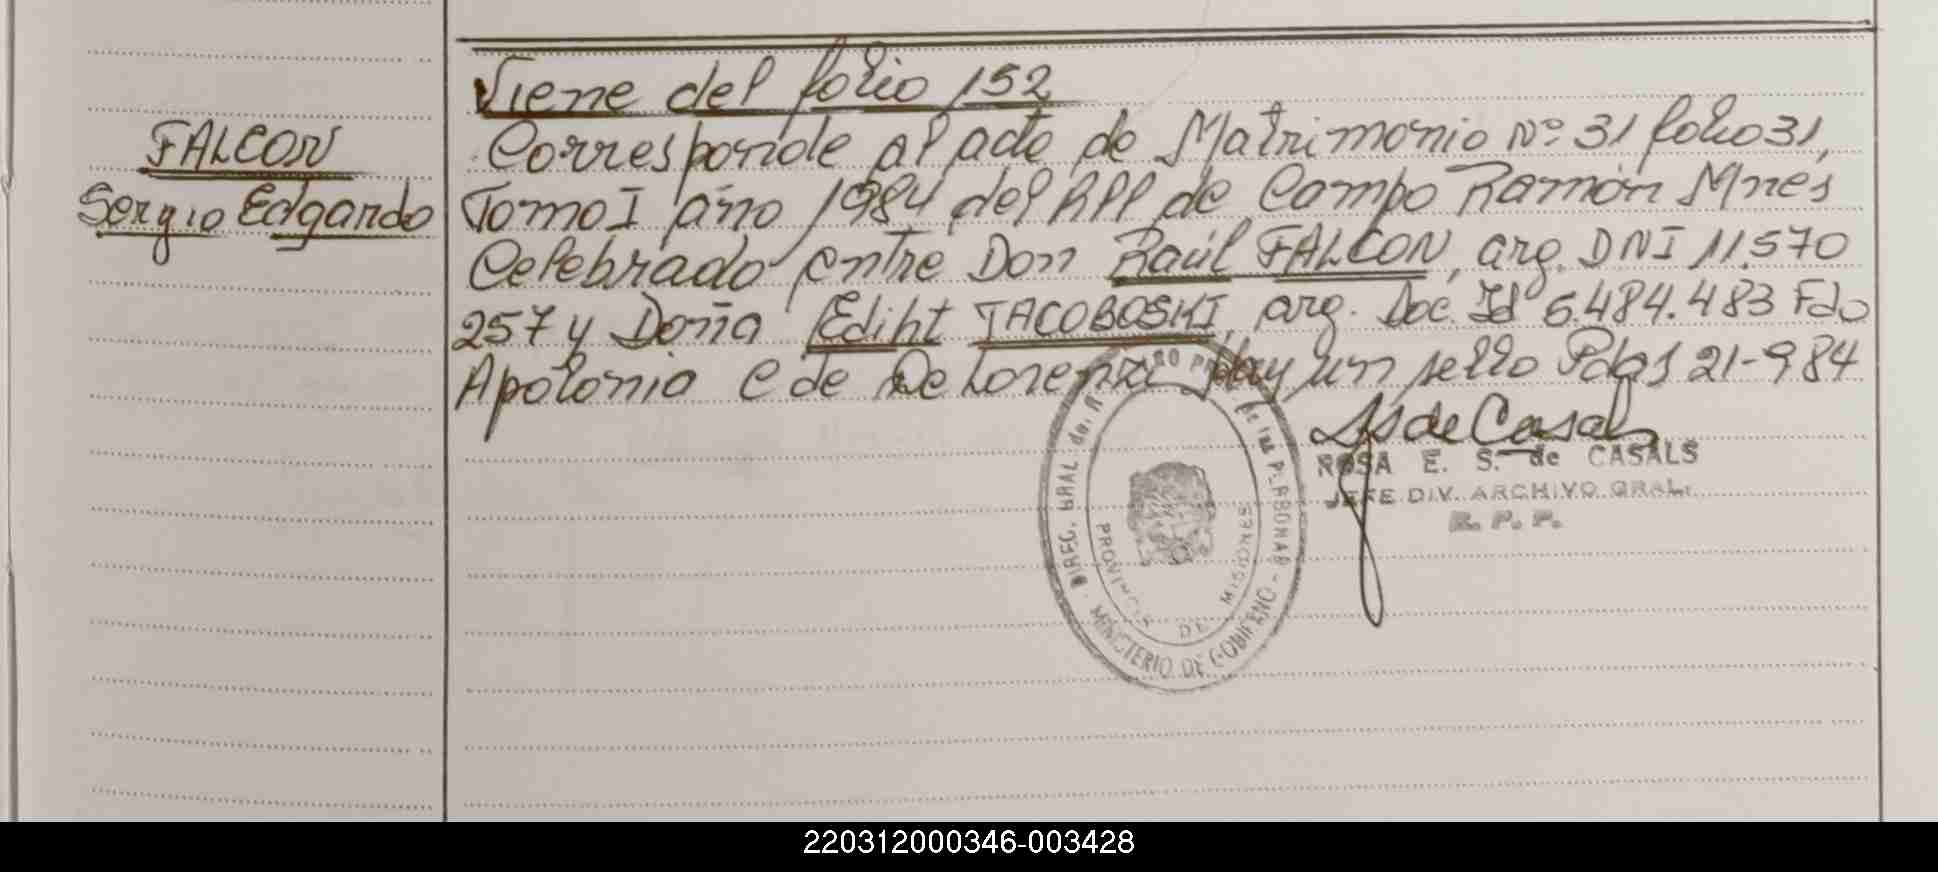 Viene del folio 152
FALCON
Sergio Edgardo
Corresponde al acta de Matrimonio Nº 31 folio 31,
Tomo I año 1984 del RPP de Campo Ramón Mnes
Celebrado entre Don Raúl FALCON, arg. DNI 11.570
257 y Doña Ediht JACOBOSKI, arg. Doc. Id 6.484.483 Fdo
Apolonia C de De Lorenzi Hay un sello Pdas 21-9 984
S de Casals
ROSA E. S. de CASALS
JEFE DIV. ARCHIVO GRAL.
R. P. P.
DIREC. GRAL del R DE LAS PERSONAS
PROVINCIA DE MISIONES
MINISTERIO DE GOBIERNO
220312000346-003428